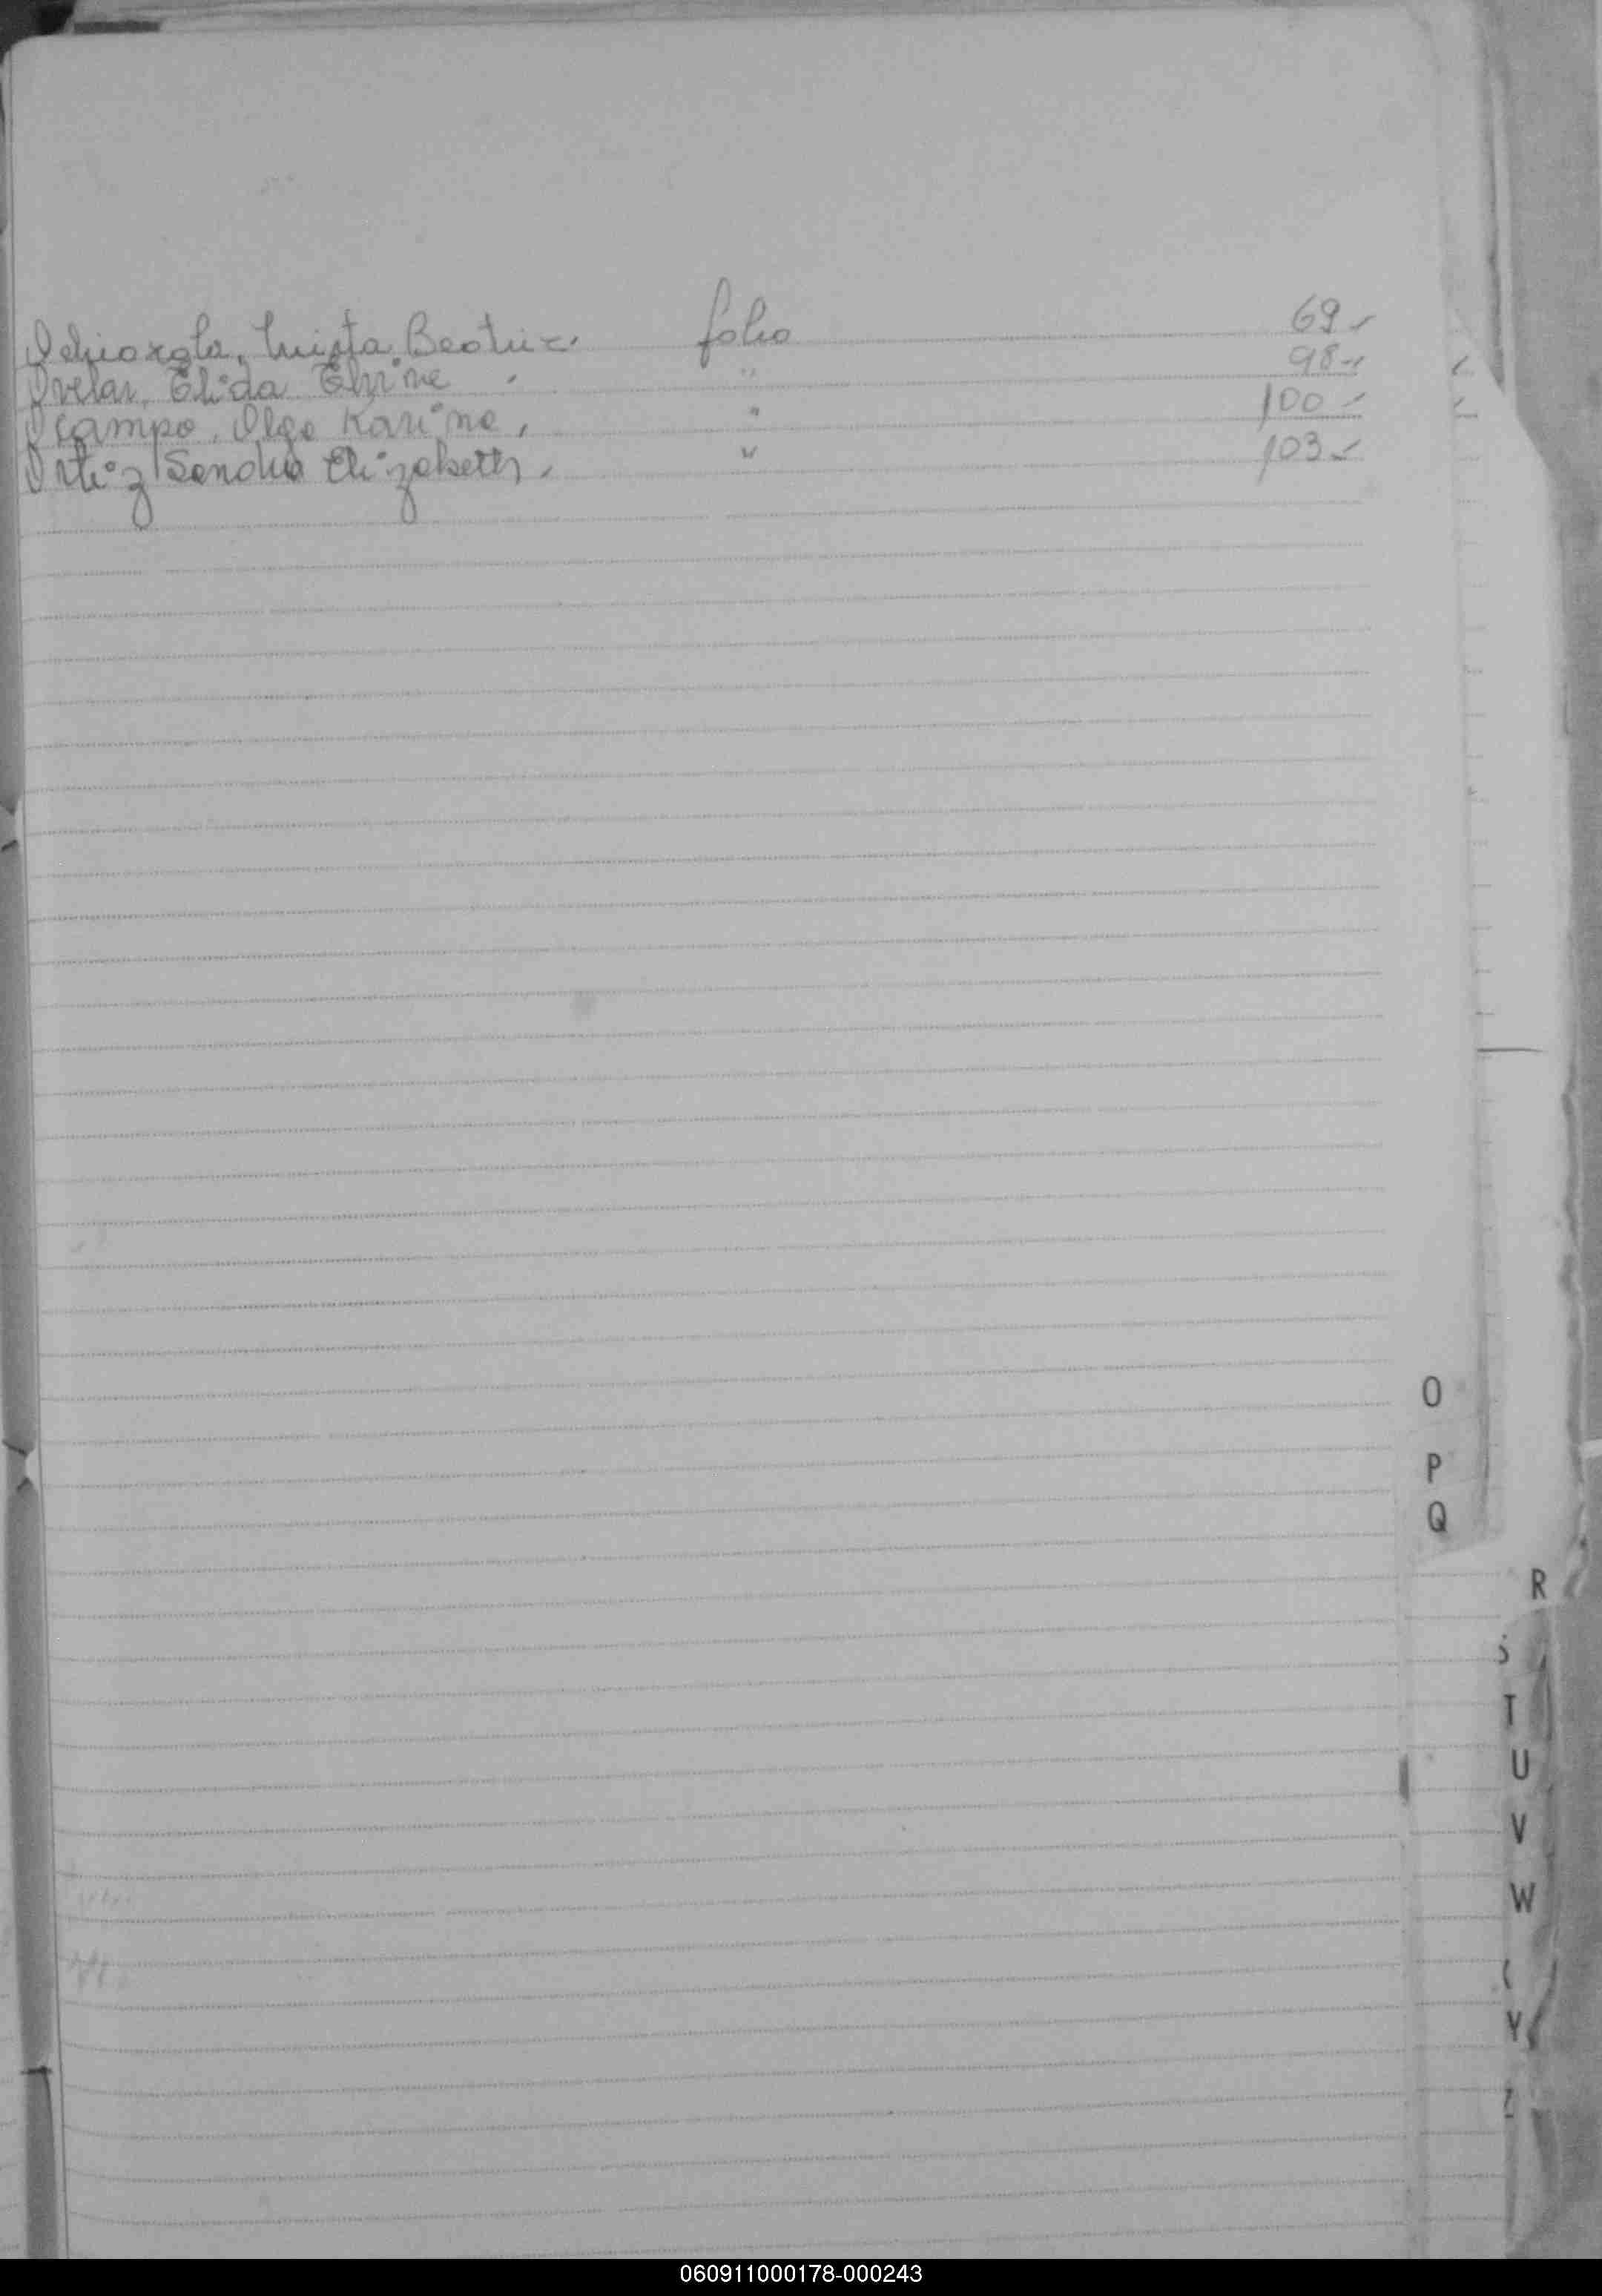 Beatriz. folio 69
Ovelar, Elida " 98
Ocampo, Olga Karina, " 100
Ortiz Sandra Elizabeth. " 103
O
P
Q
R
S
T
U
V
W
Y
Z
060911000178-000243